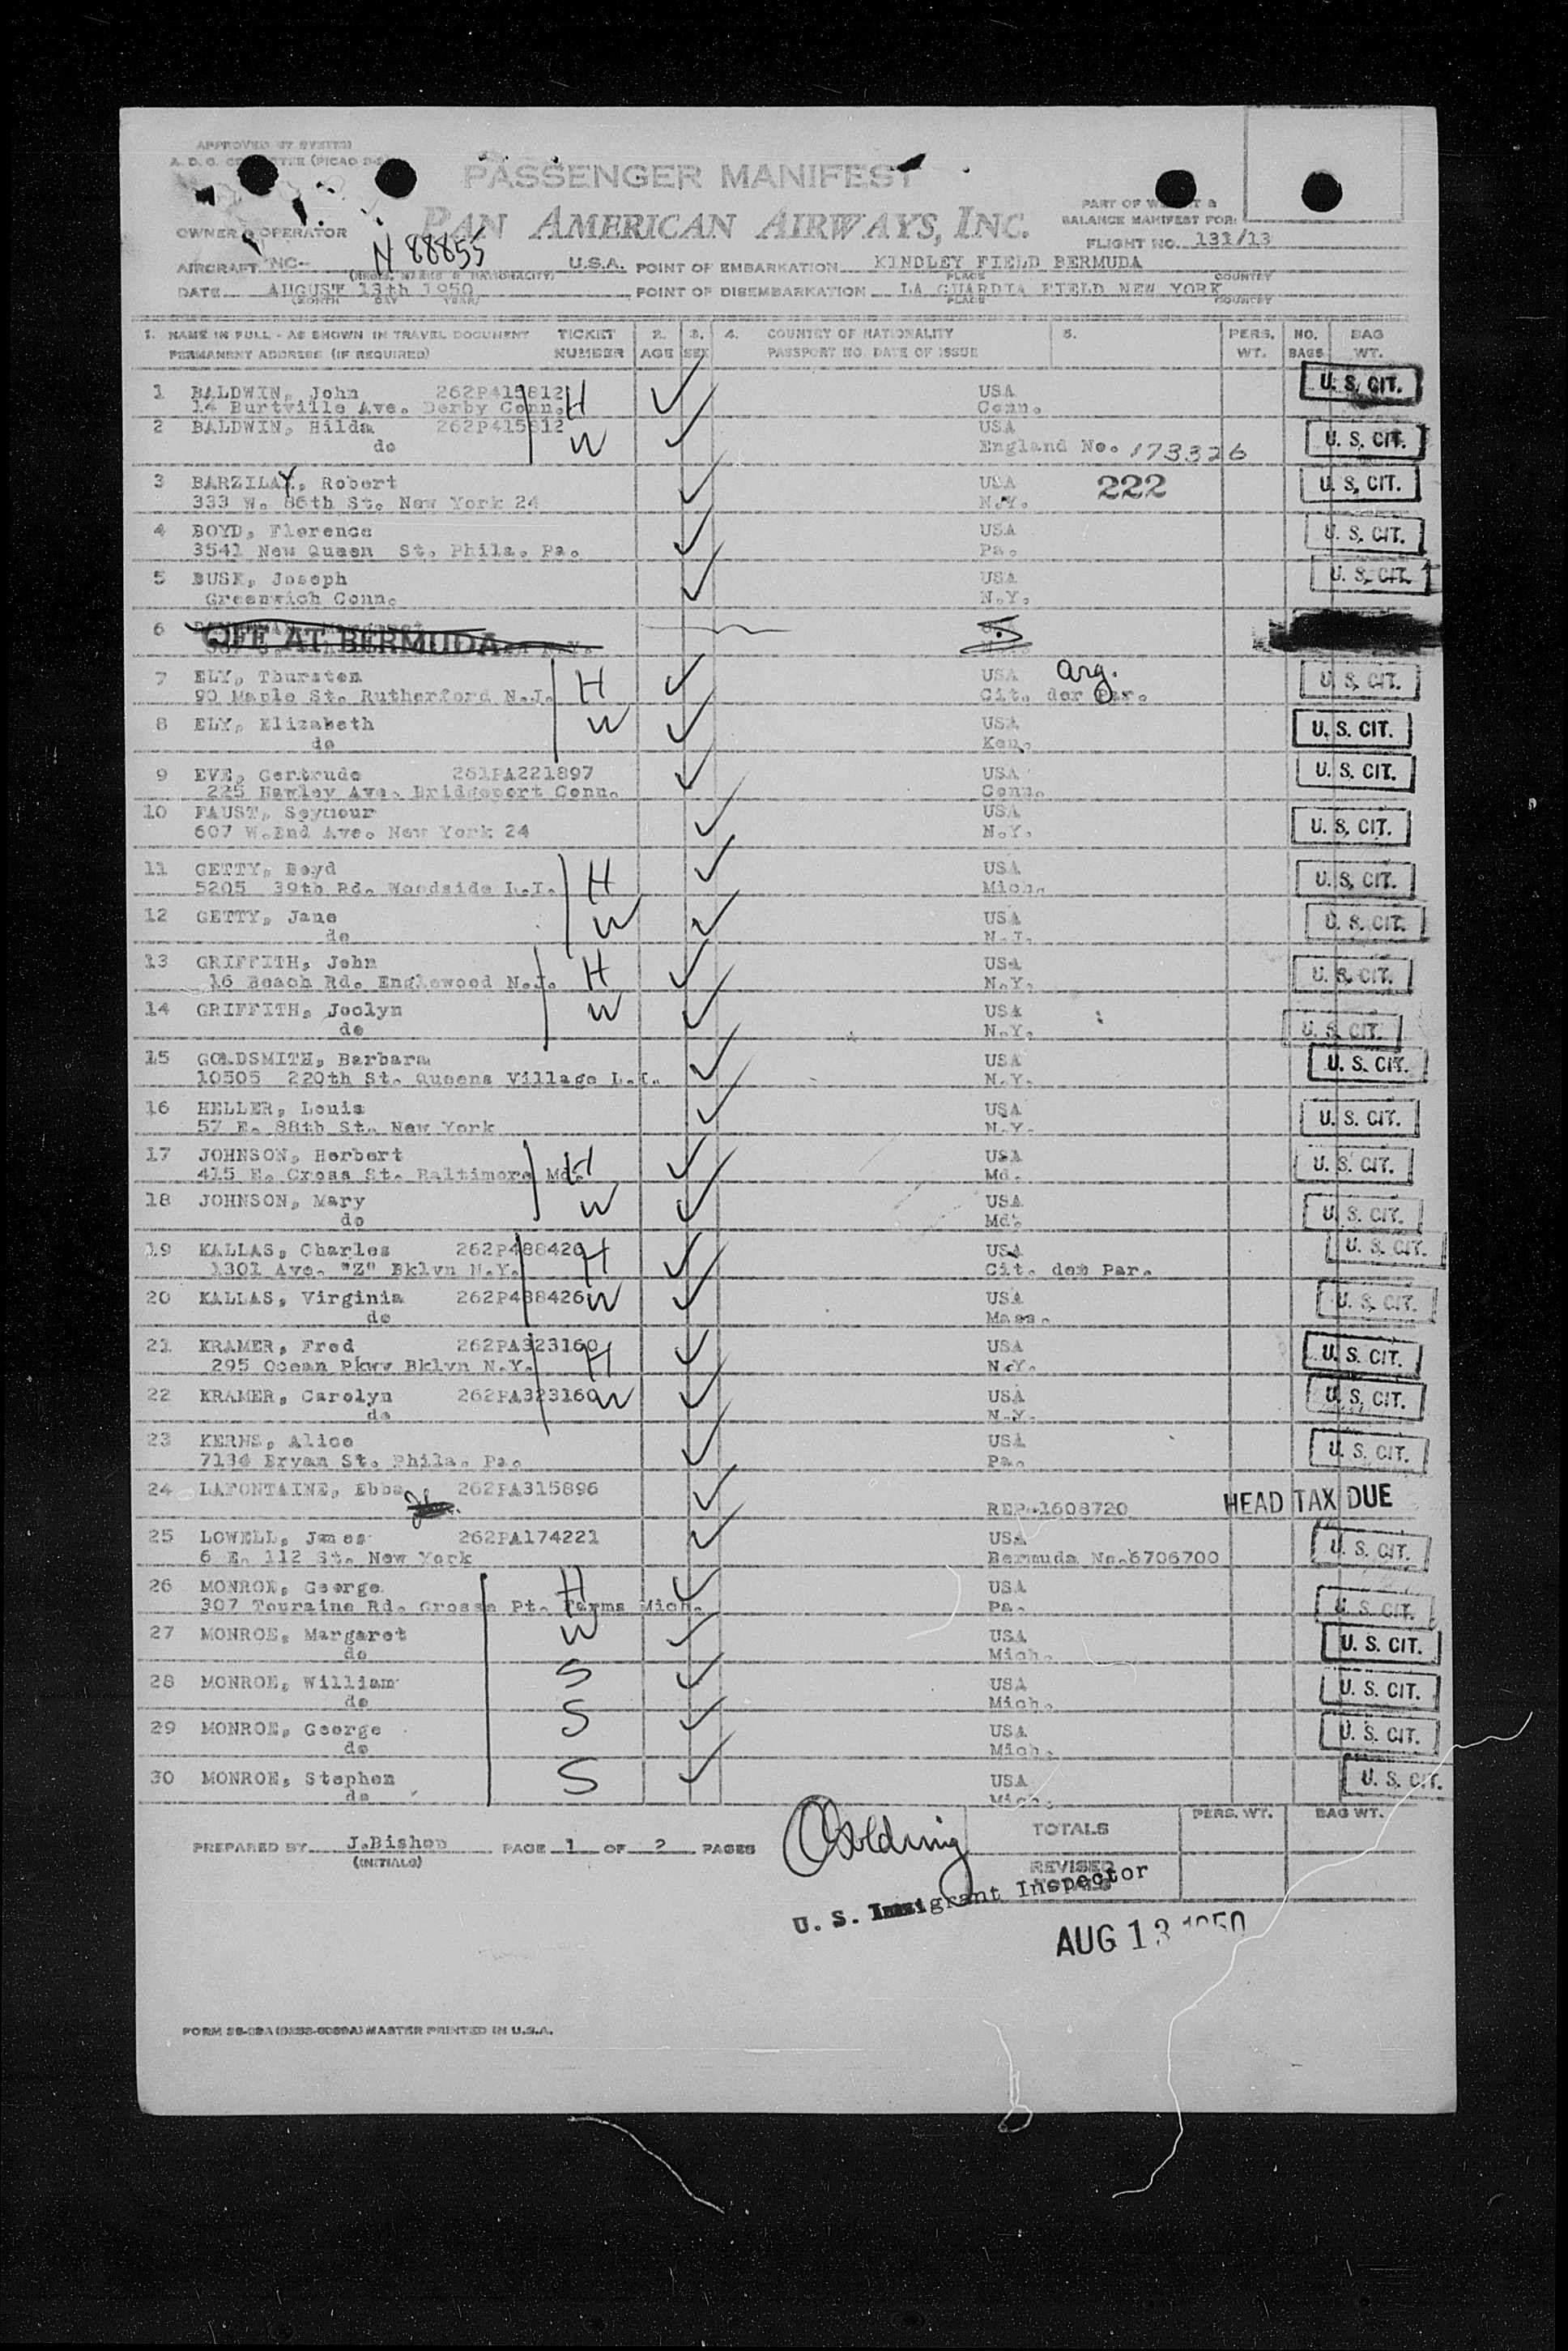 APPROVED BY SYSTEM
PASSENGER MANIFEST
PAN AMERICAN AIRWAYS, INC.
OWNER OPERATOR
PART OF WEIGHT &
BALANCE MANIFEST FOR:
FLIGHT NO. 131/13
AIRCRAFT NC- N 88855 U.S.A. POINT OF EMBARKATION KINDLEY FIELD BERMUDA
PLACE COUNTRY
DATE AUGUST 13th 1950 POINT OF DISEMBARKATION LA GUARDIA FIELD NEW YORK
(MONTH DAY YEAR) PLACE COUNTRY
1. NAME IN FULL - AS SHOWN IN TRAVEL DOCUMENT TICKET 2. 3. 4. COUNTRY OF NATIONALITY 5. PERS. NO. BAG
PERMANENT ADDRESS (IF REQUIRED) NUMBER AGE SEX PASSPORT NO. DATE OF ISSUE WT. BAGS WT.
1 BALDWIN, John 262P415812 H USA U. S. CIT.
14 Burtville Ave. Derby Conn. Conn.
2 BALDWIN, Hilda 262P415812 W USA U. S. CIT.
do England No. 173326
3 BARZILAY, Robert USA 222 U. S. CIT.
333 W. 86th St. New York 24 N.Y.
4 BOYD, Florence USA U. S. CIT.
3541 New Queen St. Phila. Pa. Pa.
5 BUSK, Joseph USA U. S. CIT.
Greenwich Conn. N.Y.
6 OFF AT BERMUDA
7 ELY, Thursten H USA Arg. U. S. CIT.
90 Maple St. Rutherford N.J. Cit. der Par.
8 ELY, Elizabeth W USA U. S. CIT.
do Ken.
9 EVE, Gertrude 261PA221897 USA U. S. CIT.
225 Hawley Ave. Bridgeport Conn. Conn.
10 FAUST, Seymour USA U. S. CIT.
607 W.End Ave. New York 24 N.Y.
11 GETTY, Boyd H USA U. S. CIT.
5205 39th Rd. Woodside L.I. Mich.
12 GETTY, Jane W USA U. S. CIT.
do N.J.
13 GRIFFITH, John H USA U. S. CIT.
16 Beach Rd. Englewood N.J. N.Y.
14 GRIFFITH, Joclyn W USA U. S. CIT.
do N.Y.
15 GOLDSMITH, Barbara USA U. S. CIT.
10505 220th St. Queens Village L.I. N.Y.
16 HELLER, Louis USA U. S. CIT.
57 E. 88th St. New York N.Y.
17 JOHNSON, Herbert H USA U. S. CIT.
415 E. Cross St. Baltimore Md. Md.
18 JOHNSON, Mary W USA U. S. CIT.
do Md.
19 KALLAS, Charles 262P488426 H USA U. S. CIT.
1301 Ave. "Z" Bklyn N.Y. Cit. dem Par.
20 KALLAS, Virginia 262P488426 W USA U. S. CIT.
do Mass.
21 KRAMER, Fred 262PA323160 H USA U. S. CIT.
295 Ocean Pkwy Bklyn N.Y. N.Y.
22 KRAMER, Carolyn 262PA323160 W USA U. S. CIT.
do N.Y.
23 KERNS, Alice USA U. S. CIT.
7134 Bryan St. Phila. Pa. Pa.
24 LAFONTAINE, Ebba 262PA315896 HEAD TAX DUE
REP-1608720
25 LOWELL, James 262PA174221 USA U. S. CIT.
6 E. 112 St. New York Bermuda No.6706700
26 MONROE, George H USA U. S. CIT.
307 Touraine Rd. Grosse Pt. Farms Mich. Pa.
27 MONROE, Margaret W USA U. S. CIT.
do Mich.
28 MONROE, William S USA U. S. CIT.
do Mich.
29 MONROE, George S USA U. S. CIT.
do Mich.
30 MONROE, Stephen S USA U. S. CIT.
do Mich.
PERS. WT. BAG WT.
PREPARED BY J.Bishop PAGE 1 OF 2 PAGES TOTALS
(INITIALS)
REVISED
U. S. Immigrant Inspector
AUG 13 1950
MASTER PRINTED IN U.S.A.